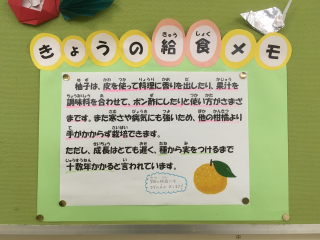 きょうの給食メモ
柚子は、皮を使って料理に香りを出したり、果汁を
調味料を合わせて、ポン酢にしたりと使い方がさまざ
まです。また寒さや病気にも強いため、他の柑橘より
手がかからず栽培できます。
ただし、成長はとても遅く、種から実をつけるまで
十数年かかると言われています。